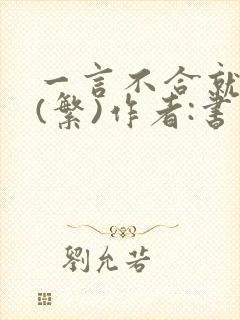 一言不合就
(繁)作者:書
劉允若